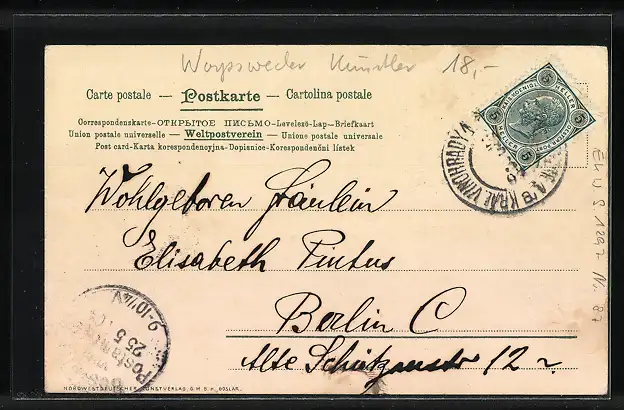 Worpsweder Künstler 18,-
Carte postale — Postkarte — Cartolina postale
Correspondenskarte-ОТКРЫТОЕ ПИСЬМО-Levelező-Lap-Briefkaart
Union postale universelle — Weltpostverein — Unione postale universale
Post card-Karta korespondencyjna-Dopisnice-Korespondenční lístek
5 5 5 5
HELLER
KRÁL. VINOHRADY 1
Wohlgeboren Fräulein
Elisabeth Pintus
Berlin C
Alte Schützenstr 12
6-10½V
25 5
NORDWESTDEUTSCHER KUNSTVERLAG, G.M.B.H., GOSLAR.